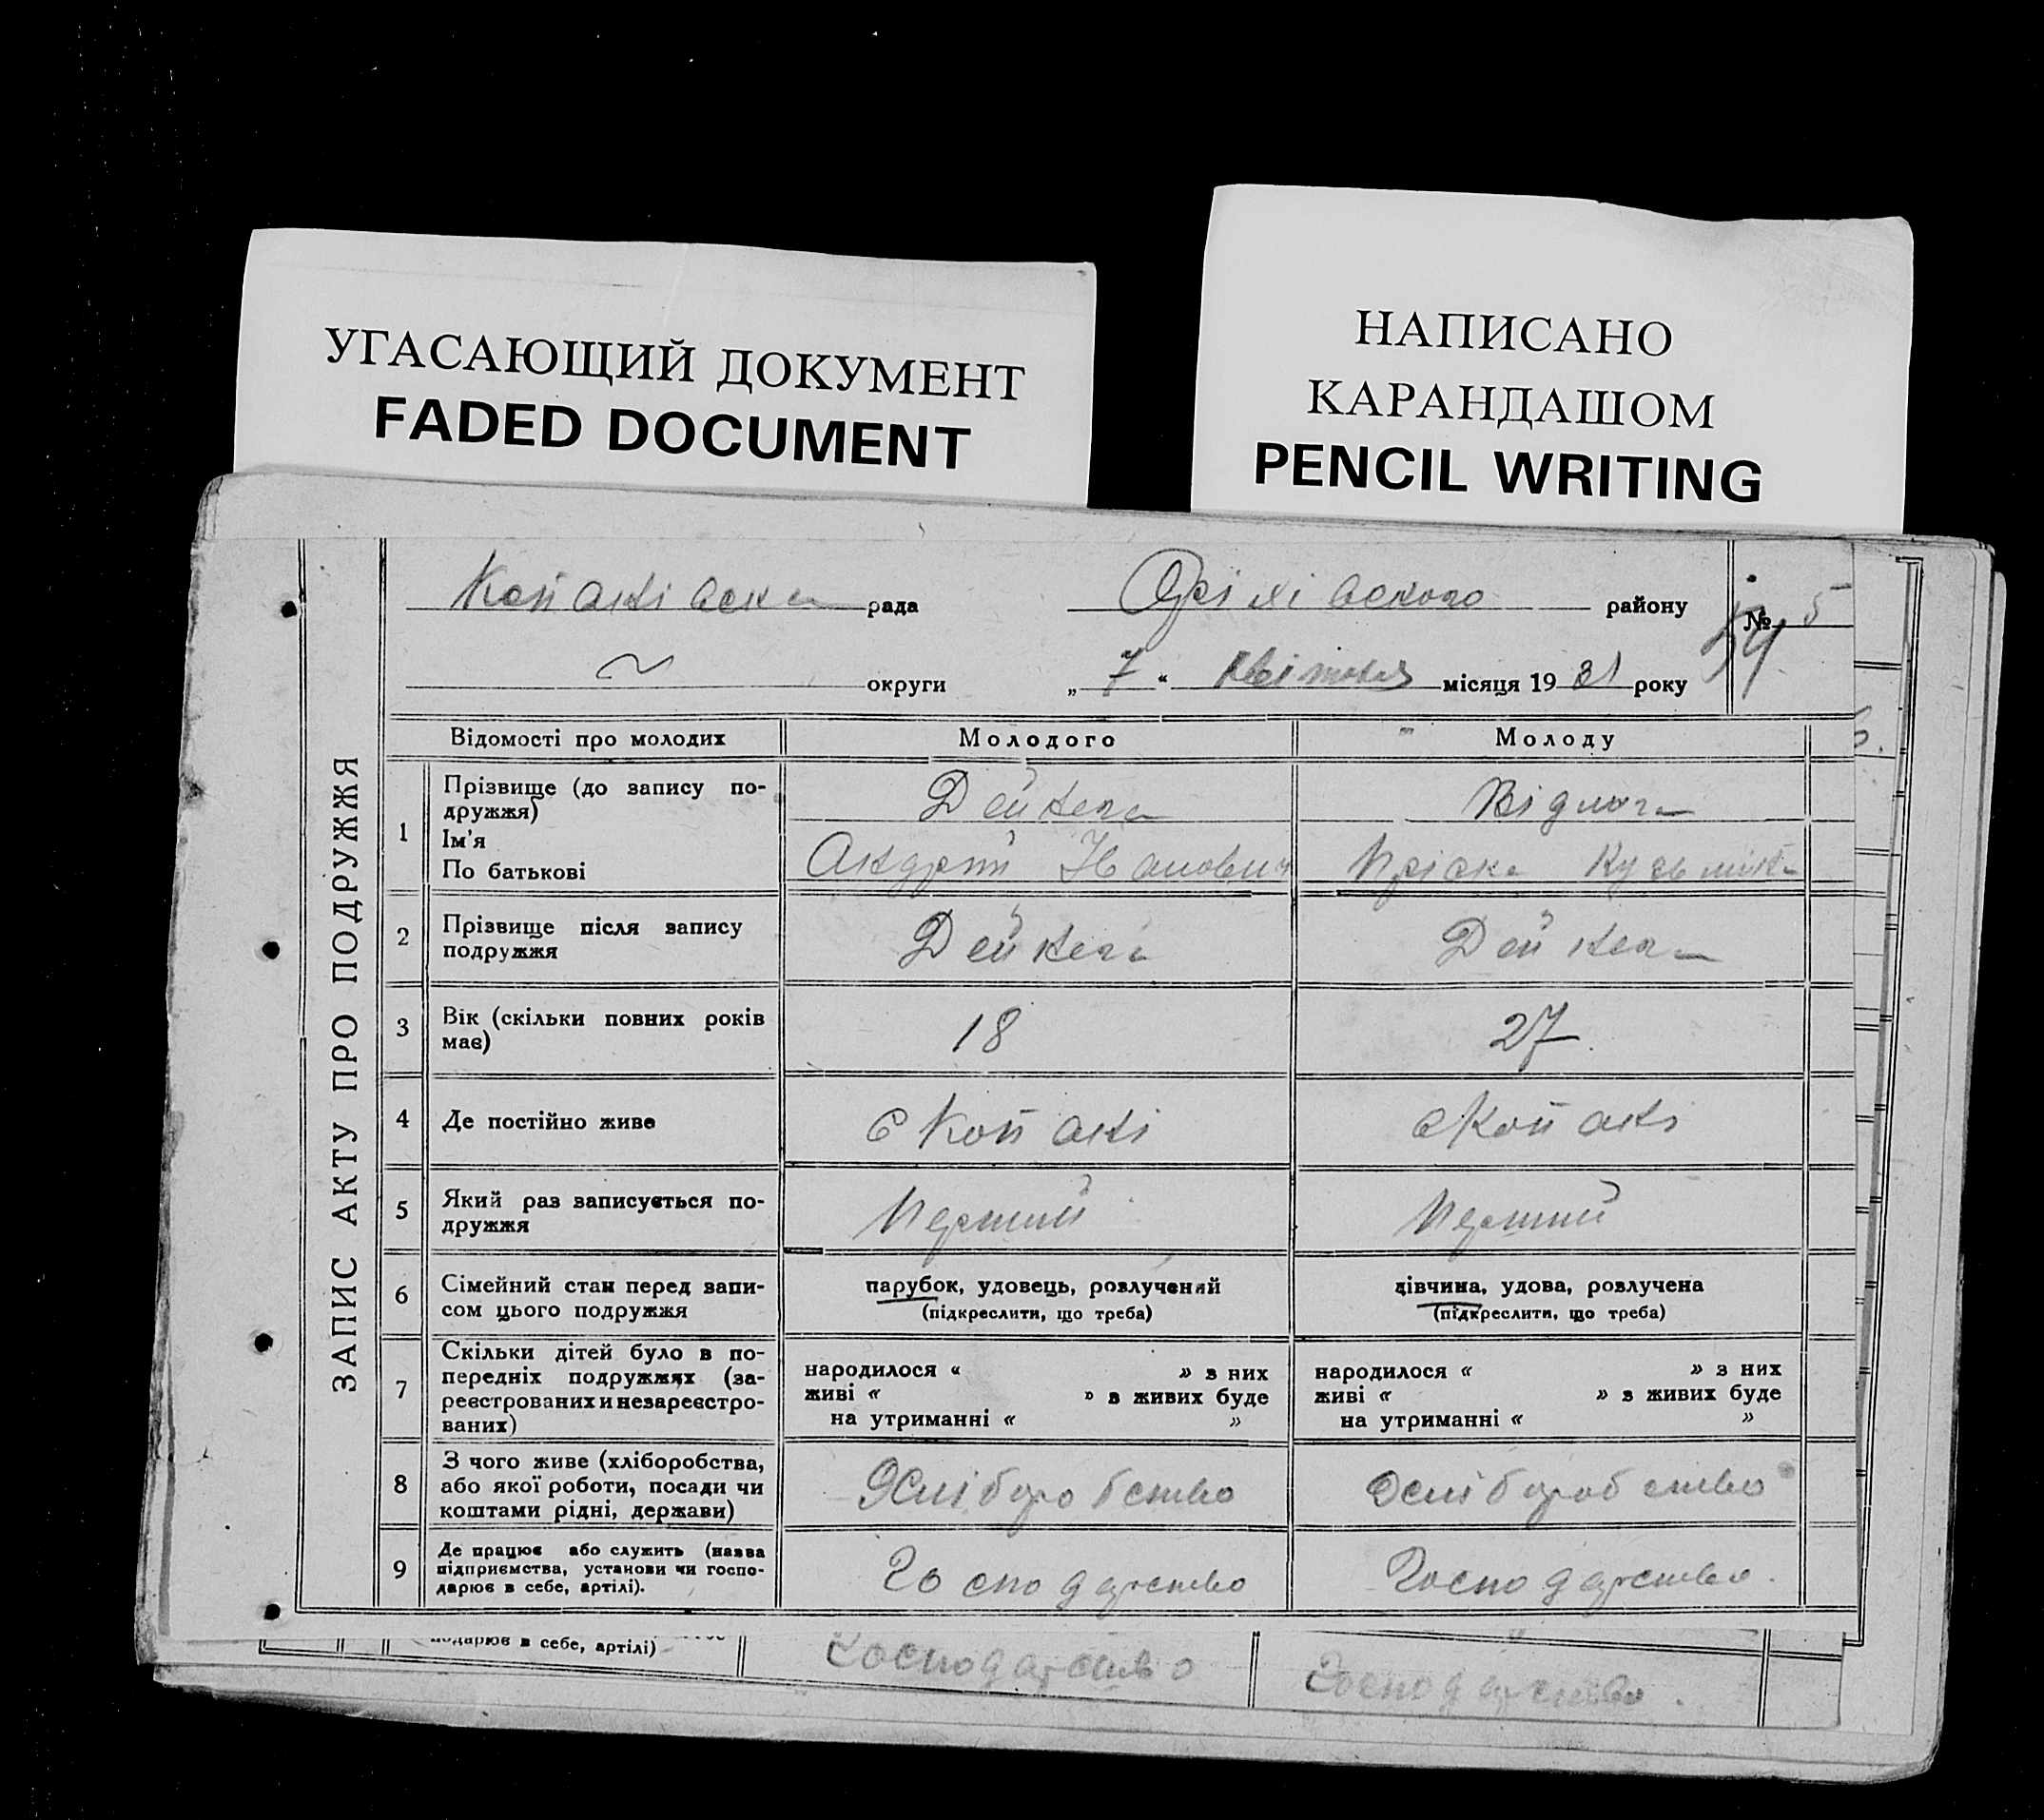 УГАСАЮЩИЙ ДОКУМЕНТ
FADED DOCUMENT
НАПИСАНО
КАРАНДАШОМ
PENCIL WRITING
ЗАПИС АКТУ ПРО ПОДРУЖЖЯ
Копанівска рада Оріхівского району № 5
54
~ округи „ 7 “ квітня місяця 1931 року
Відомості про молодих Молодого Молоду
1 Прізвище (до запису подружжя) Дейнега
Ім'я
По батькові Андрій Іванович Пріска Кузьмівна
2 Прізвище після запису подружжя Дейнега Дейнега
3 Вік (скільки повних років має) 18 27
4 Де постійно живе с Копані с Копані
5 Який раз записується подружжя Перший Перший
6 Сімейний стан перед записом цього подружжя парубок, удовець, розлучений дівчина, удова, розлучена
(підкреслити, що треба) (підкреслити, що треба)
7 Скільки дітей було в попередніх подружжях (зареєстрованих и незареєстрованих) народилося « » з них народилося « » з них
живі « » з живих буде живі « » з живих буде
на утриманні « » на утриманні « »
8 З чого живе (хліборобства, або якої роботи, посади чи коштами рідні, держави)
9 Де працює або служить (назва підприємства, установи чи господарює в себе, артілі). Господарство Господарство.
подарює в себе, артілі) Господарство Господарство.